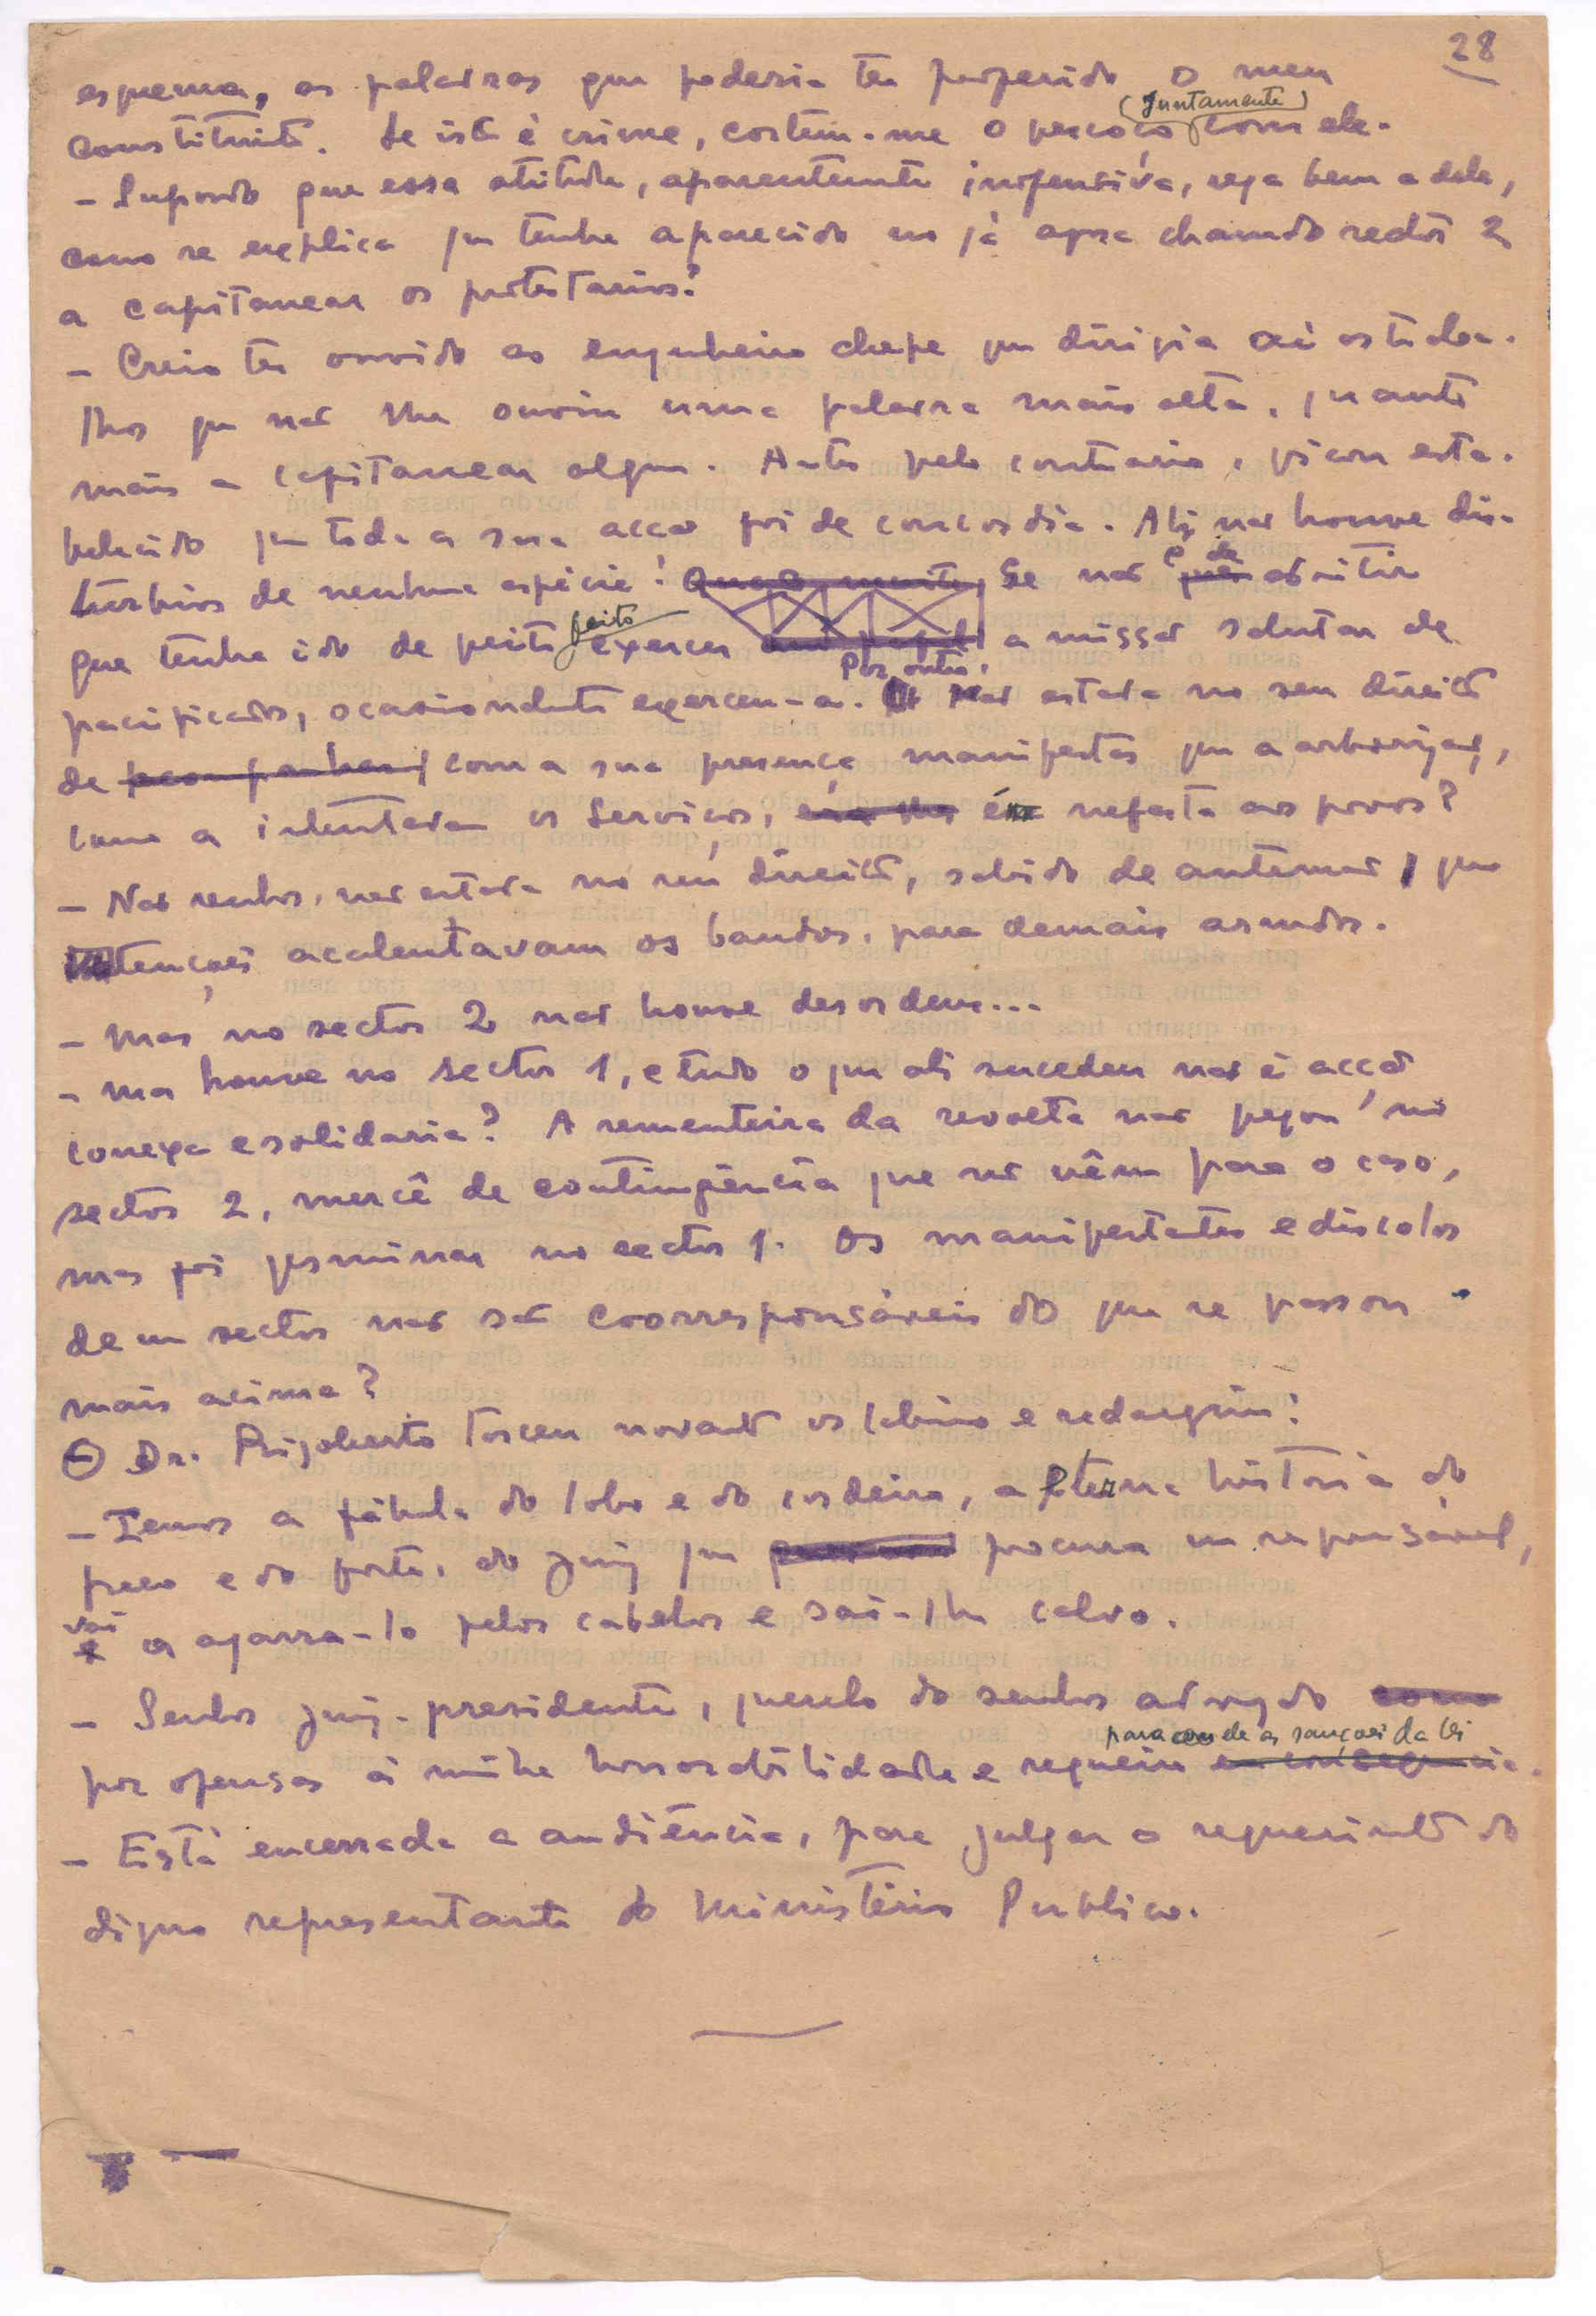 28
esquema, as palavras que poderia ter proferido o meu
constituinte. Se isto é crime, cortem-me o pescoço (juntamente) com ele.
– Supondo que essa atitude, aparentemente inofensiva, seja bem a dele,
como se explica que tenha aparecido no já agora chamado sector 2
a capitanear os protestários?
– Creio ter ouvido ao engenheiro chefe que dirigia aí os traba-
lhos que não lhe ouviu uma palavra mais alta, quanto
mais a capitanear alguém. Antes pelo contrário, ficou esta-
belecido que toda a sua acção foi de concórdia. Ali não houve dis-
túrbios de nenhuma espécie! Se não é de admitir
que tenha ido de feito feito exercer a missão salutar de
pacificador, ocasionalmente exerceu-a. Por outro, não estava no seu direito
de com a sua presença manifestar que a arborização,
como a intentavam os Serviços, é nefasta aos povos?
– Não senhor, não estava no seu direito, sabido de antemão que
tenções acalentavam os bandos, para demais armados.
– Mas no sector 2 não houve desordem...
– Mas houve no sector 1, e tudo o que ali sucedeu não é acção
conexa e solidária? A sementeira da revolta não pegou no
sector 2, mercê de contingência que não vêm para o caso,
mas foi germinar no sector 1. Os manifestantes e díscolos
de um sector não são coorresponsáveis do que se passou
mais acima?
O Dr. Rigoberto torceu novamente os lábios e redarguiu:
– Temos a fábula do lobo e do cordeiro, a eterna história do
fraco e do forte, do juiz que procura um responsável,
vai a agarrá-lo pelos cabelos e sai-lhe calvo.
– Senhor juiz-presidente, querelo do senhor advogado
por ofensas à minha honorabilidade e requeiro para ele as sanções da lei.
– Está encerrada a audiência, para julgar o requerimento do
digno representante do Ministério Público.